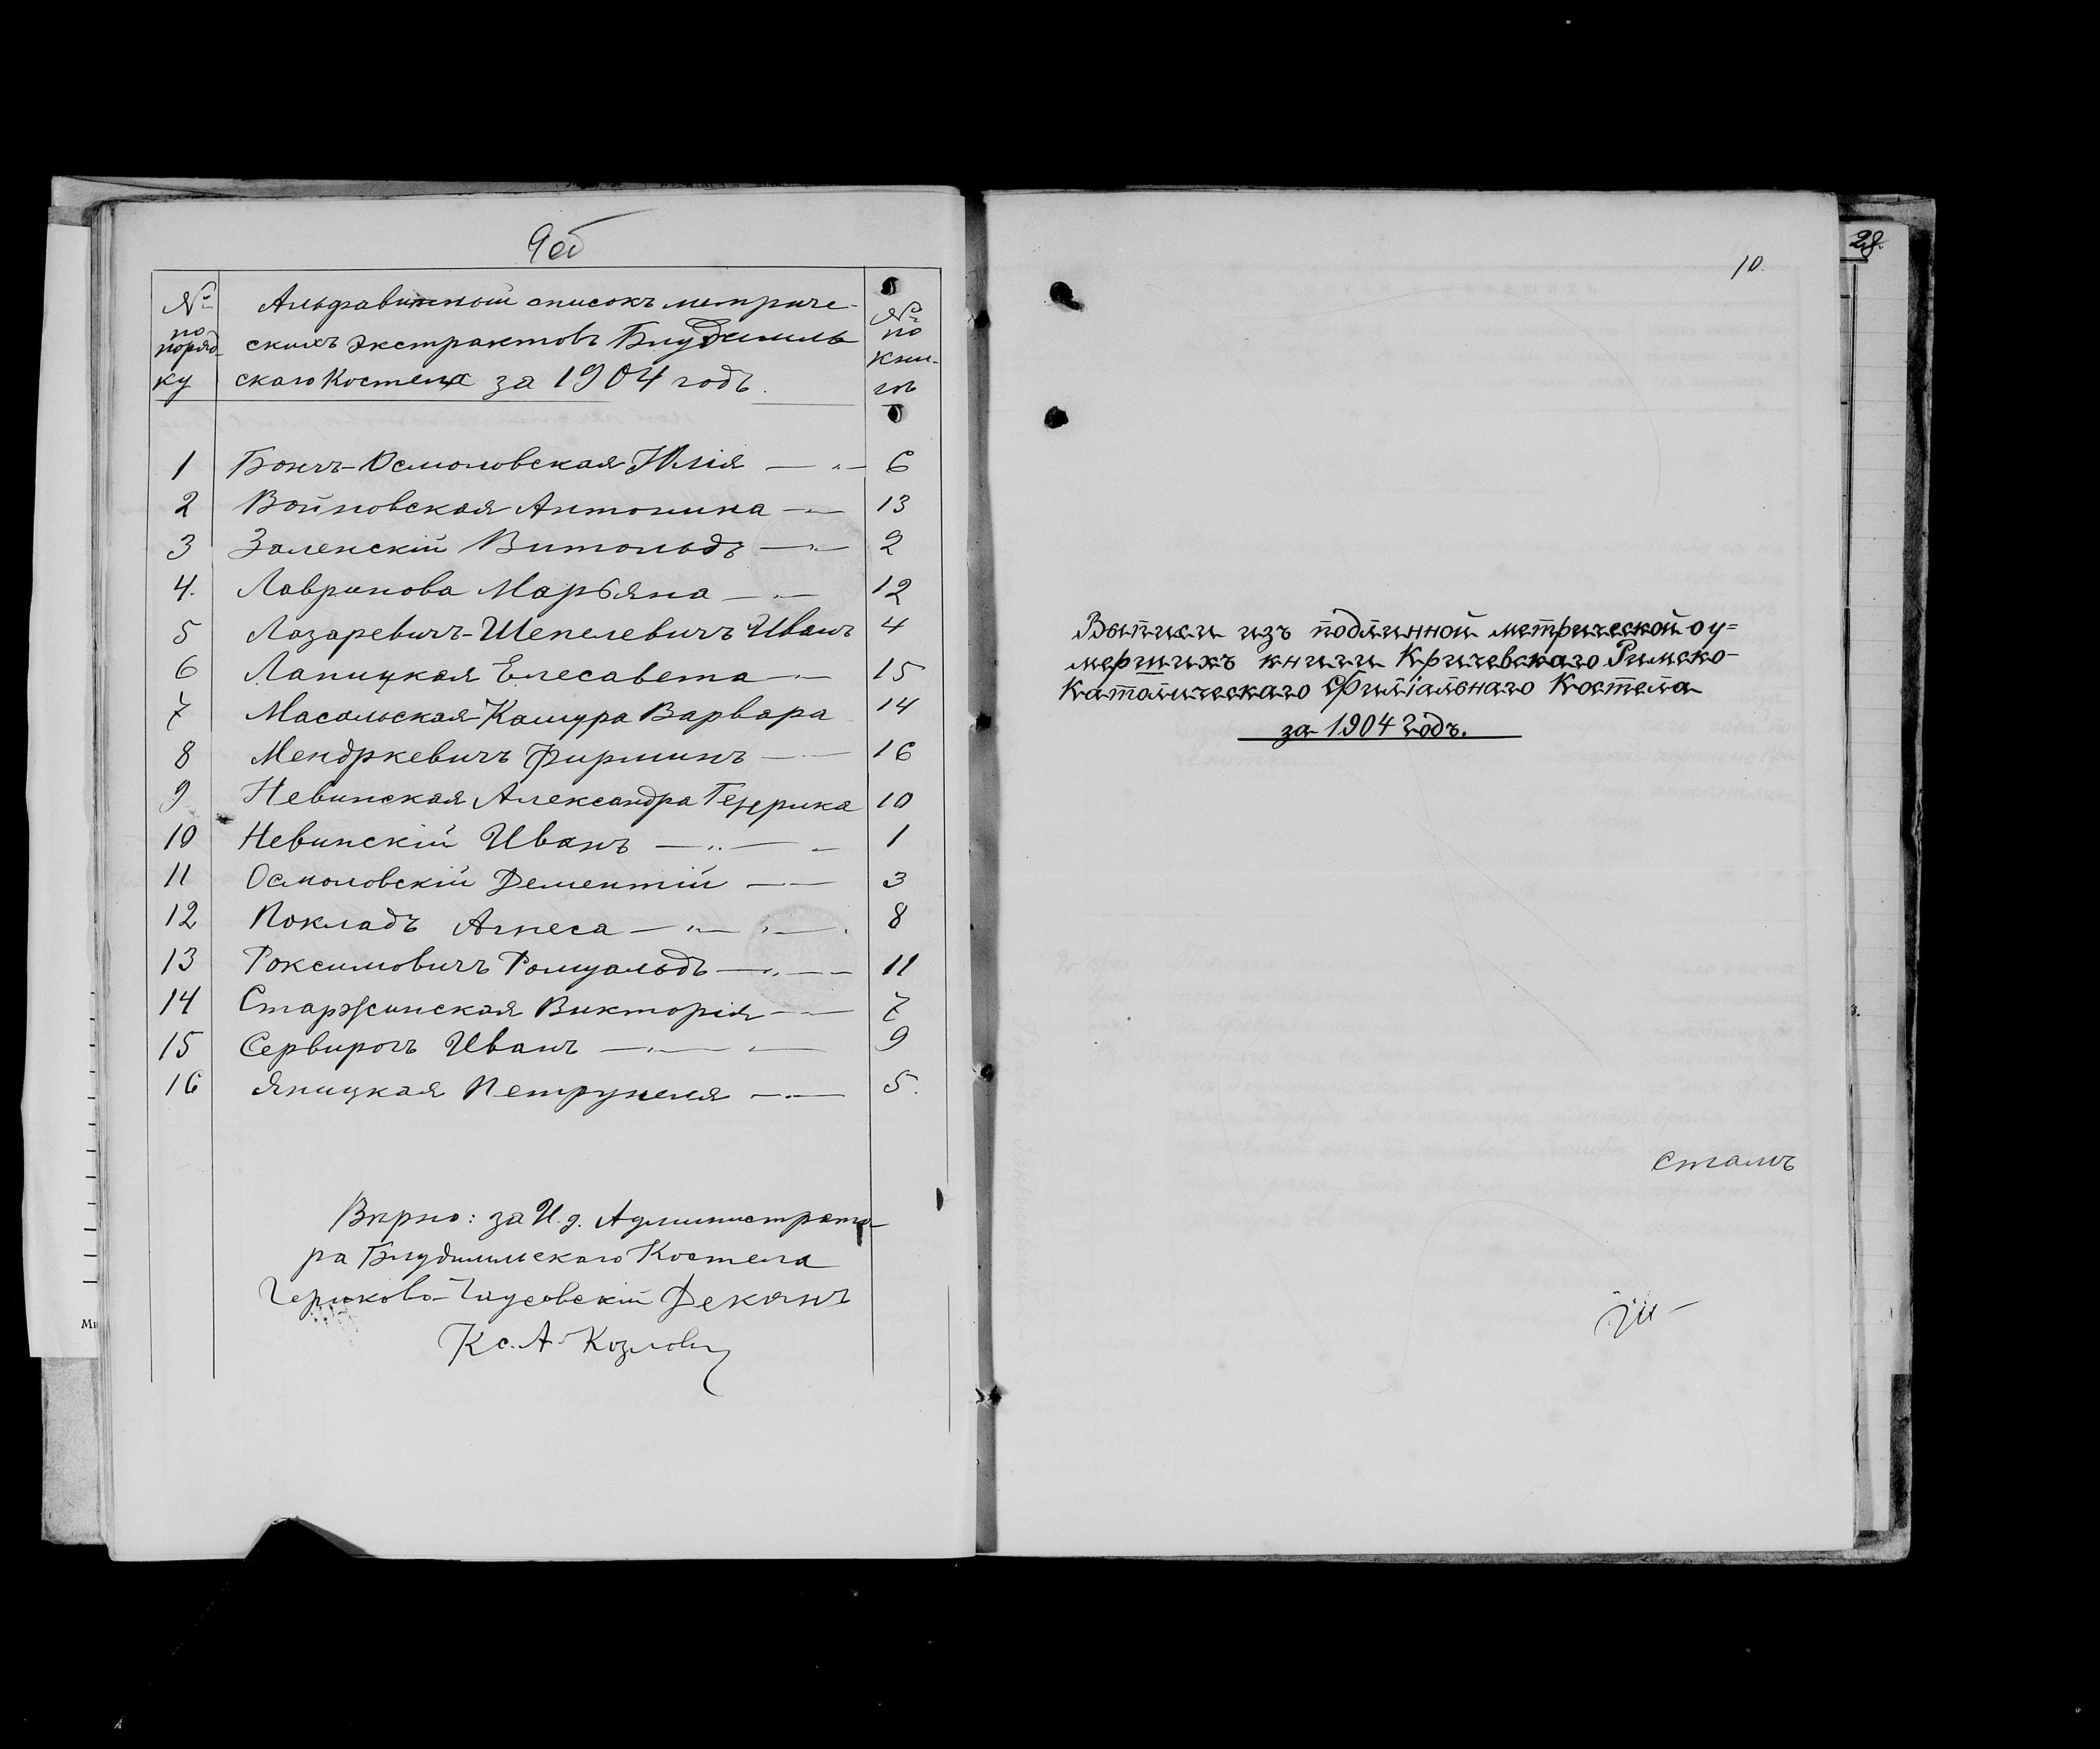 9об
№ по поряд- ку
Альфавитный списокъ метриче-
скихъ экстрактовъ Блудимль
скаго Костела за 1904 годъ.
№ по кни- гѣ
1 Бончъ-Осмоловская Юлія — " — 6
2 Войновская Антонина — 13
3 Заленскій Витольдъ — " — 2
4. Лавринова Марьяна — " — 12
5 Лазаревичъ-Шепелевичъ Иванъ 4
6 Лапицкая Елесавета — 15
7 Масальская-Кашура Варвара 14
8 Мендркевичъ Фирминъ — 16
9 Невинская Александра Генрика 10
10 Невинскій Иванъ — " — 1
11 Осмоловскій Дементій — 3
12 Покладъ Агнеса — " — " — 8
13 Роксимовичъ Ромуальдъ — " — 11
14 Старжинская Викторія — 7
15 Сервирогъ Иванъ — " — 9
16 Яницкая Петрунеля — 5.
Вѣрно: за И. д. Администрато-
ра Блудимльскаго Костела
Чериково-Чаусовскій Деканъ
Кс. А. Козлов
10.
Выписи изъ подлинной метрической о у=
мершихъ книги Кричевскаго Римско-
Католическаго Филіальнаго Костела
за 1904 годъ.
28.